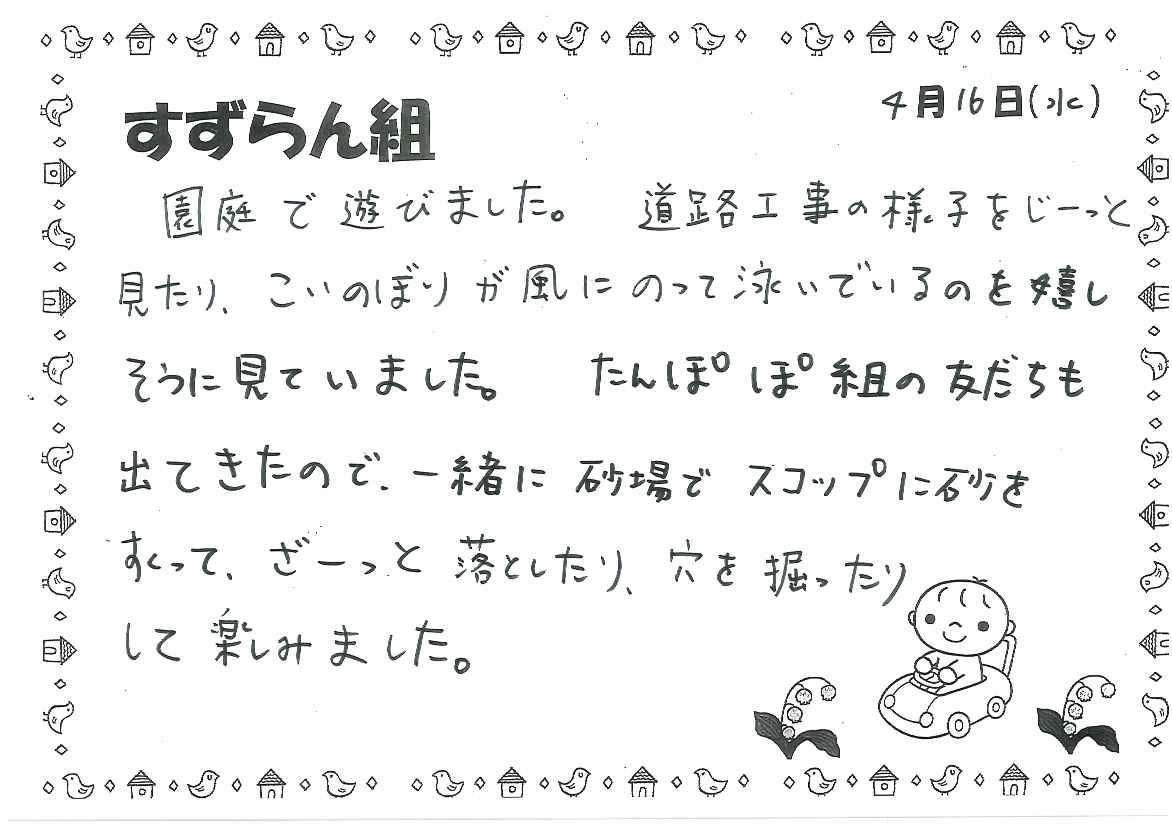 4月16日(水)
すずらん組
園庭で遊びました。 道路工事の様子をじーっと
見たり、こいのぼりが風にのって泳いでいるのを嬉し
そうに見ていました。 たんぽぽ組の友だちも
出てきたので、一緒に砂場でスコップに砂を
すくって、ざーっと落としたり、穴を掘ったり
して楽しみました。